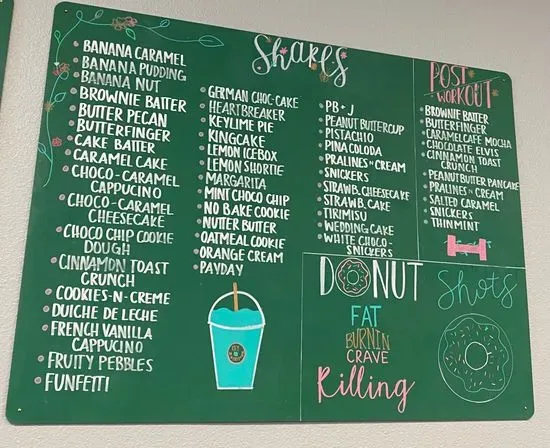 Shakes
BANANA CARAMEL
BANANA PUDDING
BANANA NUT
BROWNIE BATTER
BUTTER PECAN
BUTTERFINGER
CAKE BATTER
CARAMEL CAKE
CHOCO-CARAMEL
CAPPUCINO
CHOCO-CARAMEL
CHEESECAKE
CHOCO CHIP COOKIE
DOUGH
CINNAMON TOAST
CRUNCH
COOKIES-N-CREME
DULCHE DE LECHE
FRENCH VANILLA
CAPPUCINO
FRUITY PEBBLES
FUNFETTI
GERMAN CHOC-CAKE
HEARTBREAKER
KEYLIME PIE
KINGCAKE
LEMON ICEBOX
LEMON SHORTIE
MARGARITA
MINT CHOCO CHIP
NO BAKE COOKIE
NUTTER BUTTER
OATMEAL COOKIE
ORANGE CREAM
PAYDAY
PB+J
PEANUT BUTTERCUP
PISTACHIO
PINA COLODA
PRALINES N CREAM
SNICKERS
STRAWB. CHEESECAKE
STRAWB. CAKE
TIRIMISU
WEDDING CAKE
WHITE CHOCO-
SNICKERS
POST
WORKOUT
BROWNIE BATTER
BUTTERFINGER
CARAMEL CAFE MOCHA
CHOCOLATE ELVIS
CINNAMON TOAST
CRUNCH
PEANUTBUTTER PANCAKE
PRALINES N CREAM
SALTED CARAMEL
SNICKERS
THIN MINT
DONUT
Shots
FAT
BURNIN
CRAVE
Killing